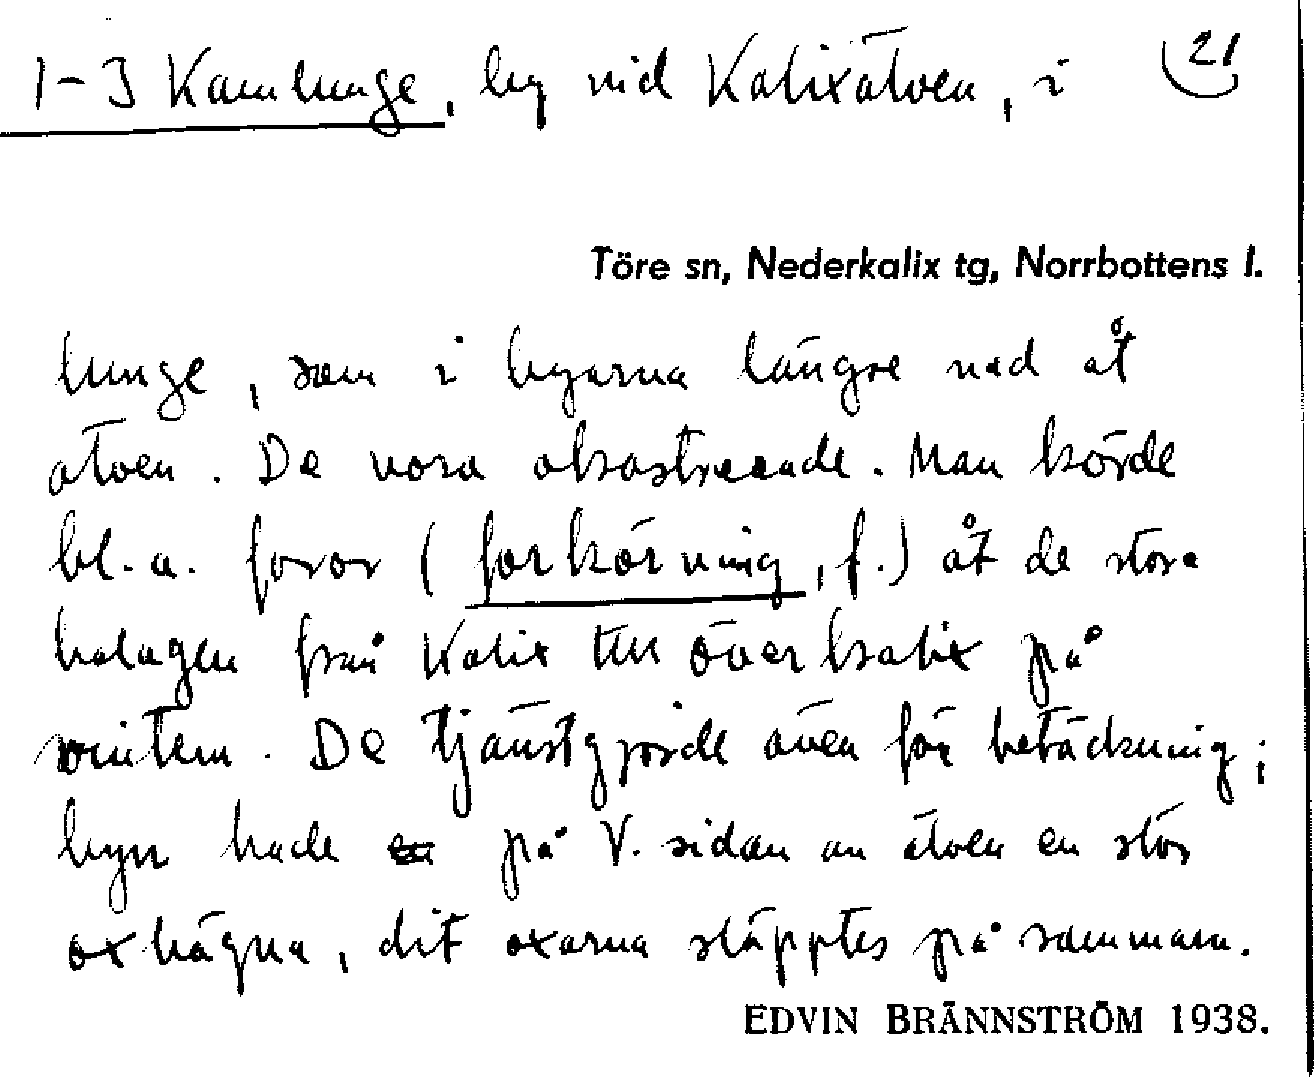 1-3 Kamlunge, by vid Kalixälven, i 21
Töre sn, Nederkalix tg, Norrbottens l.
lunge, som i byarna längre ned åt
älven. De voro okastrerade. Man körde
bl.a. foror (forkörning, f.) åt de stora
bolagen från Kalix till överkalix på
vintern. De tjänstgjorde även för betäckning;
byn hade på V. sidan av älven en stor
oxhägna, dit oxarna släpptes på sommarn.
EDVIN BRÄNNSTRÖM 1938.